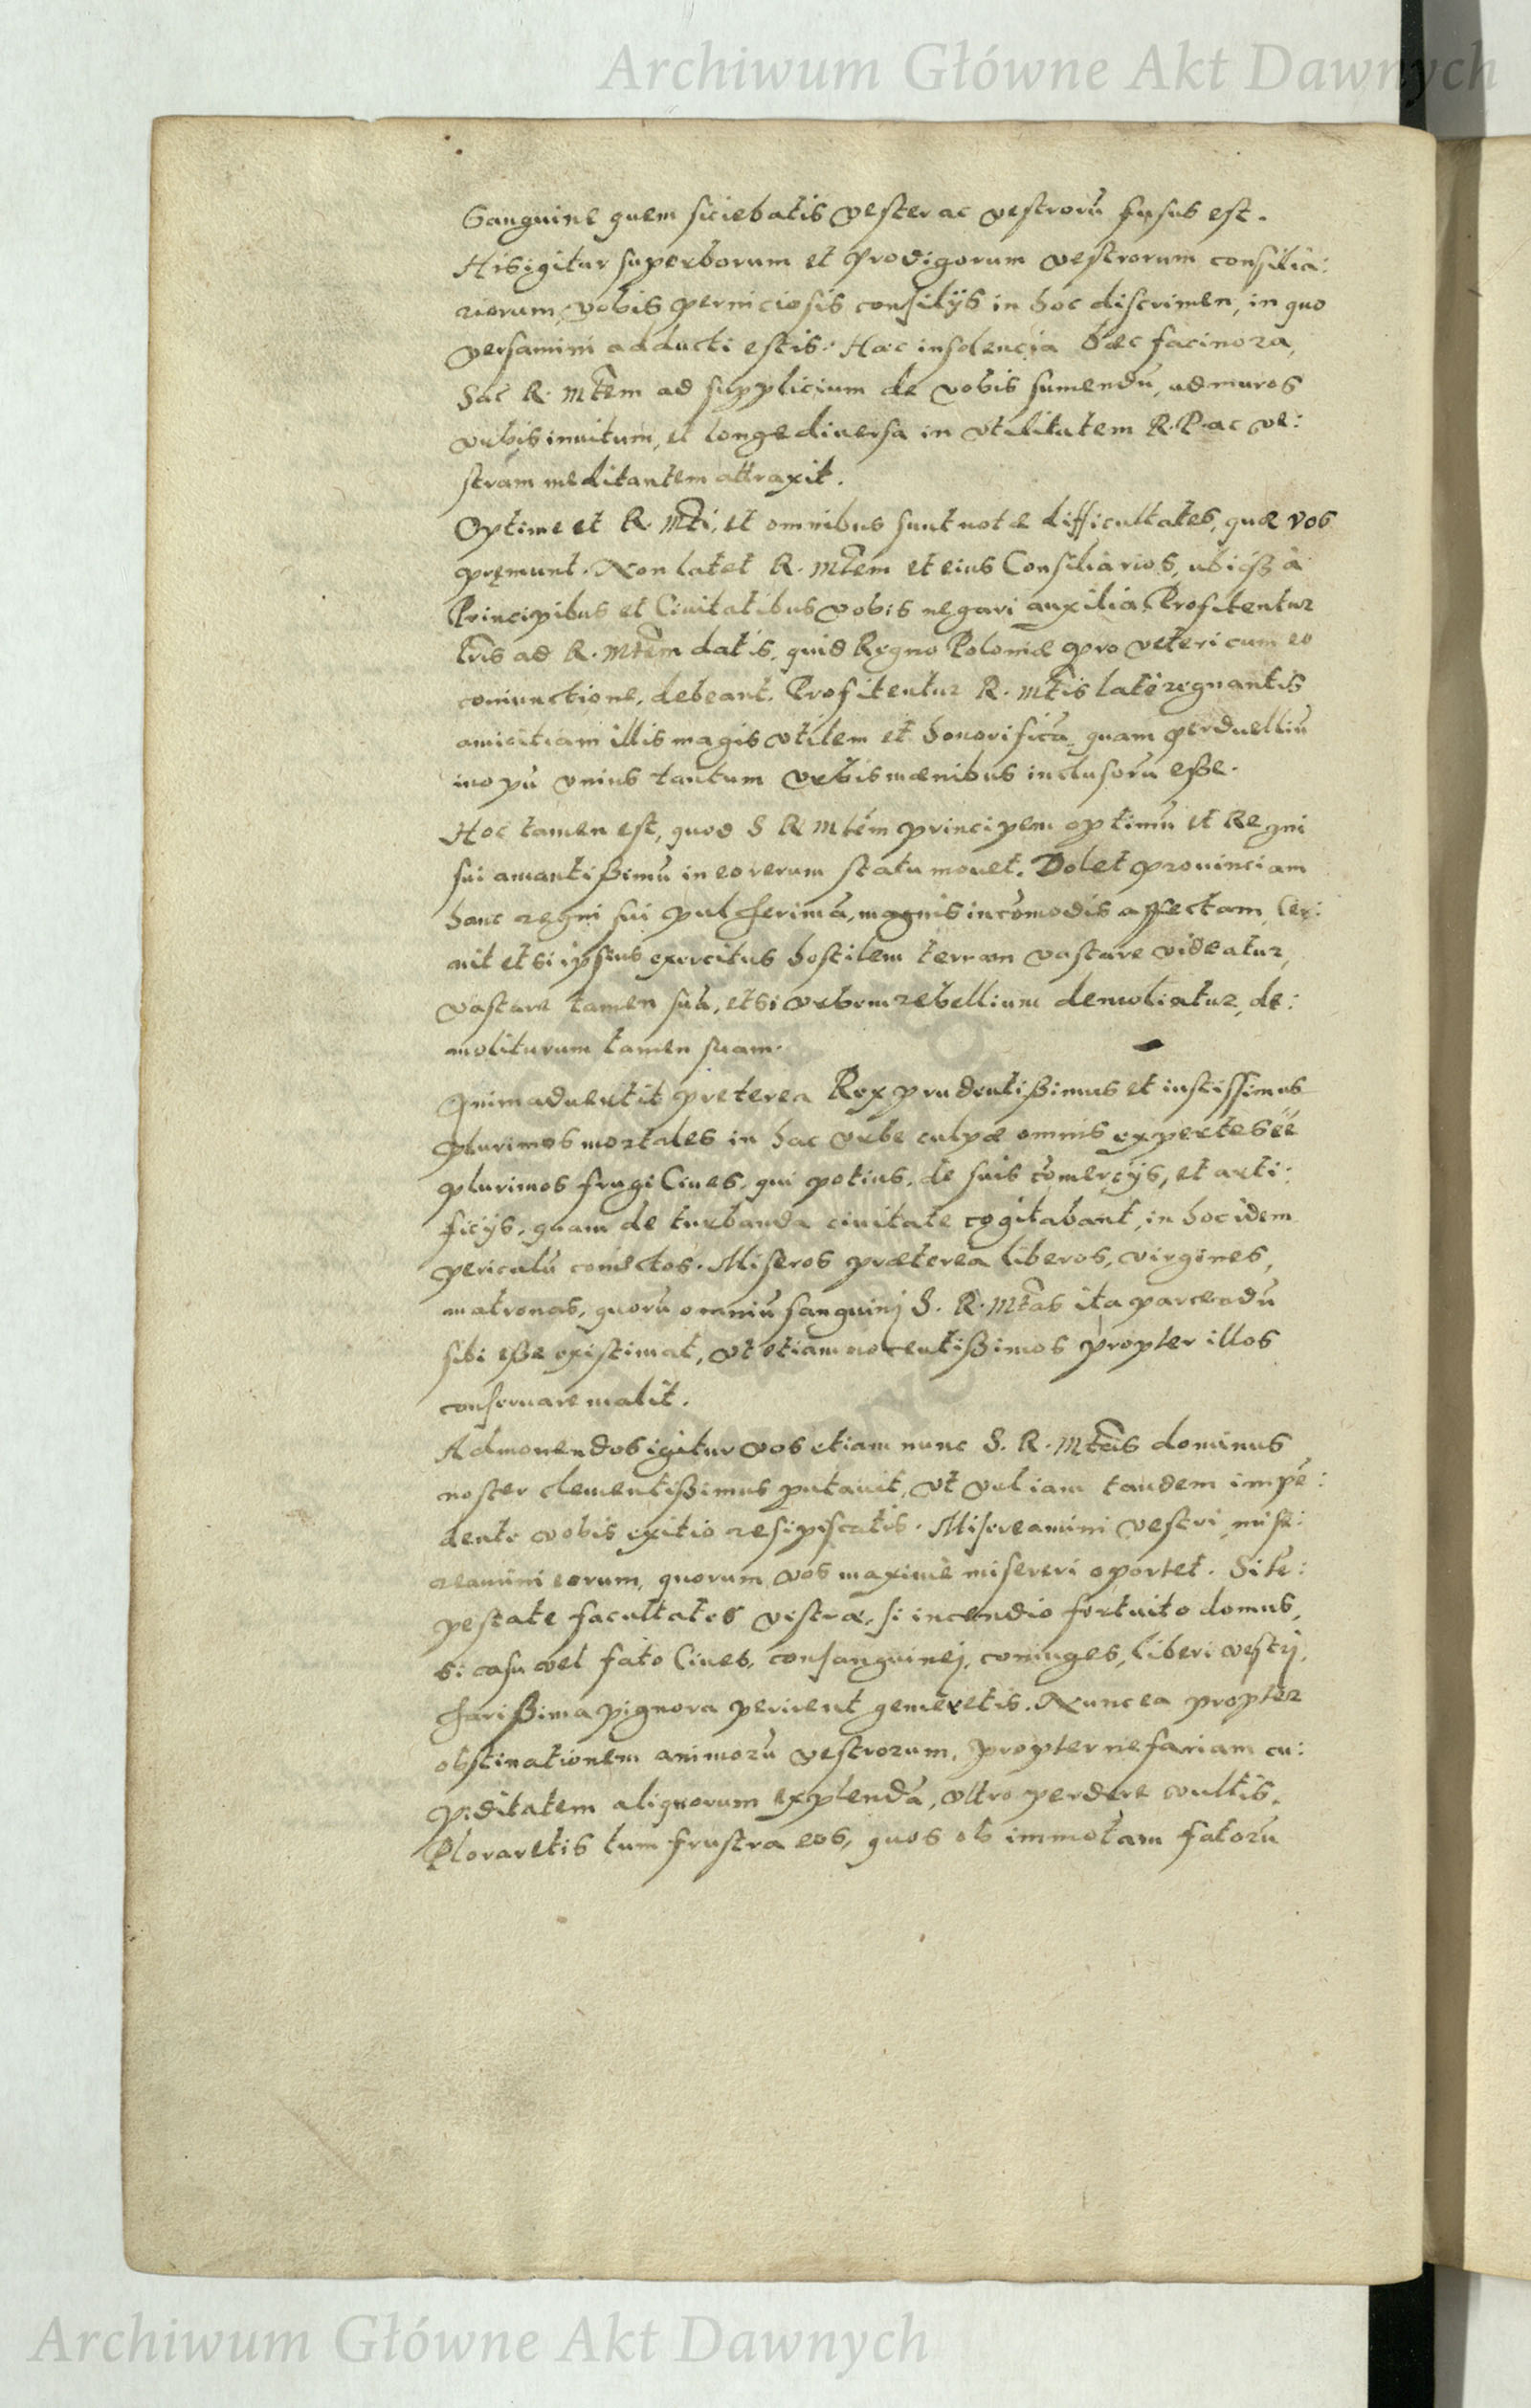 Archiwum Główne Akt Dawnych
Sanguine quem siciebatis vester ac vestrorũ fusus est.
His igitur superborum et prodigorum vestrorum consilia:
riorum, vobis perniciosis consilijs in hoc discrimen, in quo
versamini adducti estis: Hæc insolencia hæc facinora,
Sac R. Mtem ad supplicium de vobis sumendũ, ad muros
vrbis inuitum, et longe diuersa in vtilitatem R.P. ac ve:
stram meditantem attraxit.
Optime et R. Mti, et omnibus sunt notæ difficultates, quæ vos
pręmunt. Non latet R. Mtem et eius Consiliarios, ubiqз à
Principibus et Ciuitatibus vobis negari auxilia. Profitentur
lr̃is ad R. Mtem datis, quid Regno Poloniæ pro veteri cum eo
coniunctione, debeant. Profitentur R. Mtis latè regnantis
amicitiam illis magis vtilem et honorificã, quam perduelliũ
inopũ vnius tantum vrbis mænibus inclusorũ eße.
Hoc tamen est, quod S R Mtem principem optimũ et Regni
sui amantißimũ in eo rerum statu mouet. Dolet prouinciam
hanc regni sui pulcherimã, magnis incõmodis affectam, Cer:
nit etsi ipsius exercitus hostilem terram vastare videatur,
vastare tamen suã, etsi vrbem rebellium demoliatur, de:
moliturum tamen suam.
Animaduertit preterea Rex prudentißimus et iustissimus
plurimos mortales in hac vrbe culpæ omnis expertes eẽ
plurimos frugi Ciues, qui potius, de suis cõmercijs, et arti:
ficijs, quam de turbanda ciuitate cogitabant, in hoc idem
periculũ coniectos. Miseros præterea liberos, virgines,
matronas, quorũ omniũ sanguinj S. R. Mtas ita parcendũ
sibi eße existimat, vt etiam nocentißimos propter illos
conseruare malit.
Admonendos igitur vos etiam nunc S. R. Mteis dominus
noster clementißimus putauit, vt vel iam tandem impẽ:
dente vobis exitio resipiscatis. Misereamini vestri, mise:
reamini eorum, quorum vos maximè misereri oportet. Si tẽ:
pestate facultates vestræ, si incendio fortuito domus,
si casu vel fato Ciues, consanguinej, coniuges, liberi vestrj,
charißima pignora perirent gemeretis. Nunc ea propter
obstinationem animorũ vestrorum, propter nefariam cu:
piditatem aliquorum explendã, vltro perdere vultis.
Ploraretis tum frustra eos, quos ob immotam fatorũ
Archiwum Główne Akt Dawnych